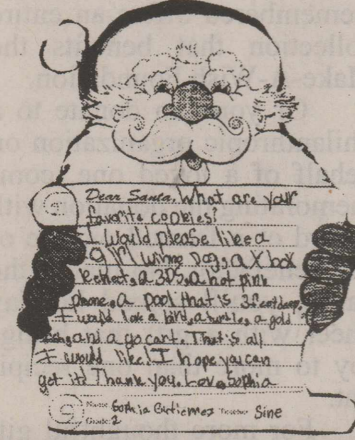 Dear Santa, What are your
favorite cookies?
I would please like a
girl wiming dogs, a X box
kenect, a 3DS, a hot pink
phone, a pool that is 3 feet deep,
I would like a bird, a turtle, a gold
fish, and a go cart. That is all
I would like! I hope you can
get it! Thank you. Love, Sophia
Name: Sophia Gutierrez Teacher: Sine
Grade: 2